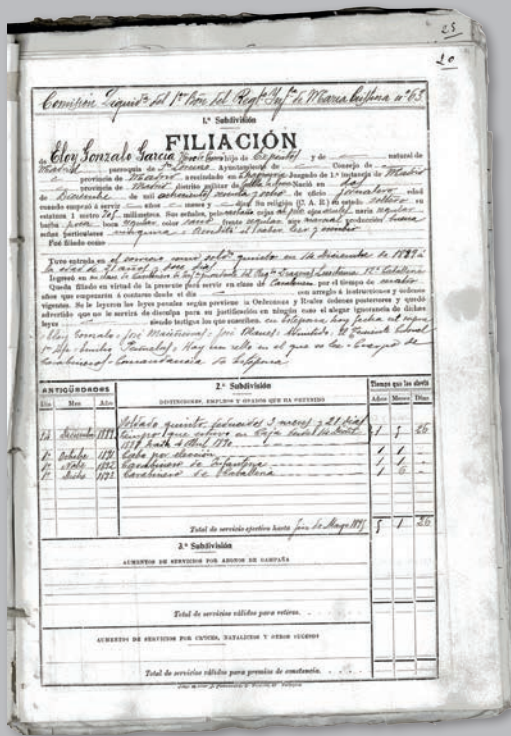 25
20
Comisión Liquidª del 1er Bón del Regtº Infª de María Cristina nº 63
1.ª Subdivisión
FILIACIÓN
de Eloy Gonzalo García hijo de Expósito y de — natural de
Madrid parroquia de Sn Lorenzo Ayuntamiento de — Concejo de —
provincia de Madrid avecindado en Juzgado de 1.ª instancia de Madrid
provincia de Madrid distrito militar de Nació en
de Diciembre de mil ochocientos sesenta y ocho de oficio edad
cuando empezó á servir — años — meses y — días. Su religión (C. A. R.) su estado soltero su
estatura 1 metro milímetros. Sus señales, pelo castaño cejas al pelo ojos nariz regular
barba poca boca regular color sano frente regular aire producción buena
señas particulares ninguna. Acreditó saber leer y escribir
Fué filiado como
Tuvo entrada en el servicio como soldº quinto en 14 Diciembre de 1889 á
la edad de 21 años y doce días
Ingresó en clase de Carabinero de Infª procedente del Regtº Dragones Lusitania 12º Caballería
Queda filiado en virtud de la presente para servir en clase de Carabinero por el tiempo de cuatro
años que empezarán á contarse desde el día — con arreglo á instrucciones y órdenes
vigentes. Se le leyeron las leyes penales según previene la Ordenanza y Reales órdenes posteriores y quedó
advertido que no le servirá de disculpa para su justificación en ningún caso el alegar ignorancia de dichas
leyes — siendo testigos los que suscriben, en Estepona, hoy fecha ut supra
Eloy Gonzalo = José = José = El Teniente Coronel
1er Jefe = Emilio = Hay un sello en el que se lee = Cuerpo de
Carabineros = Comandancia de Estepona
ANTIGÜEDADES
2.ª Subdivisión
Tiempo que los sirvió
Día Mes Año
DISTINCIONES, EMPLEOS Y GRADOS QUE HA OBTENIDO
Años Meses Días
Soldado quinto, deducidos 3 meses y 21 días
14 Diciembre 1889 tiempo que estuvo en Caja desde 14 Dicbre 1 5 26
1889 hasta 4 Abril 1890
1º Octubre 1891 Cabo por elección 1 1 -
1º Nobre 1892 Carabinero de Infantería 1 1 -
1º Dicbre 1893 Carabinero de Caballería 1 6 -
Total de servicio efectivo hasta fin de Mayo 1895 5 1 26
3.ª Subdivisión
AUMENTOS DE SERVICIOS POR ABONOS DE CAMPAÑA
Total de servicios válidos para retiros.
AUMENTOS DE SERVICIOS POR CRUCES, NATALICIOS Y OTROS SUCESOS
Total de servicios válidos para premios de constancia.